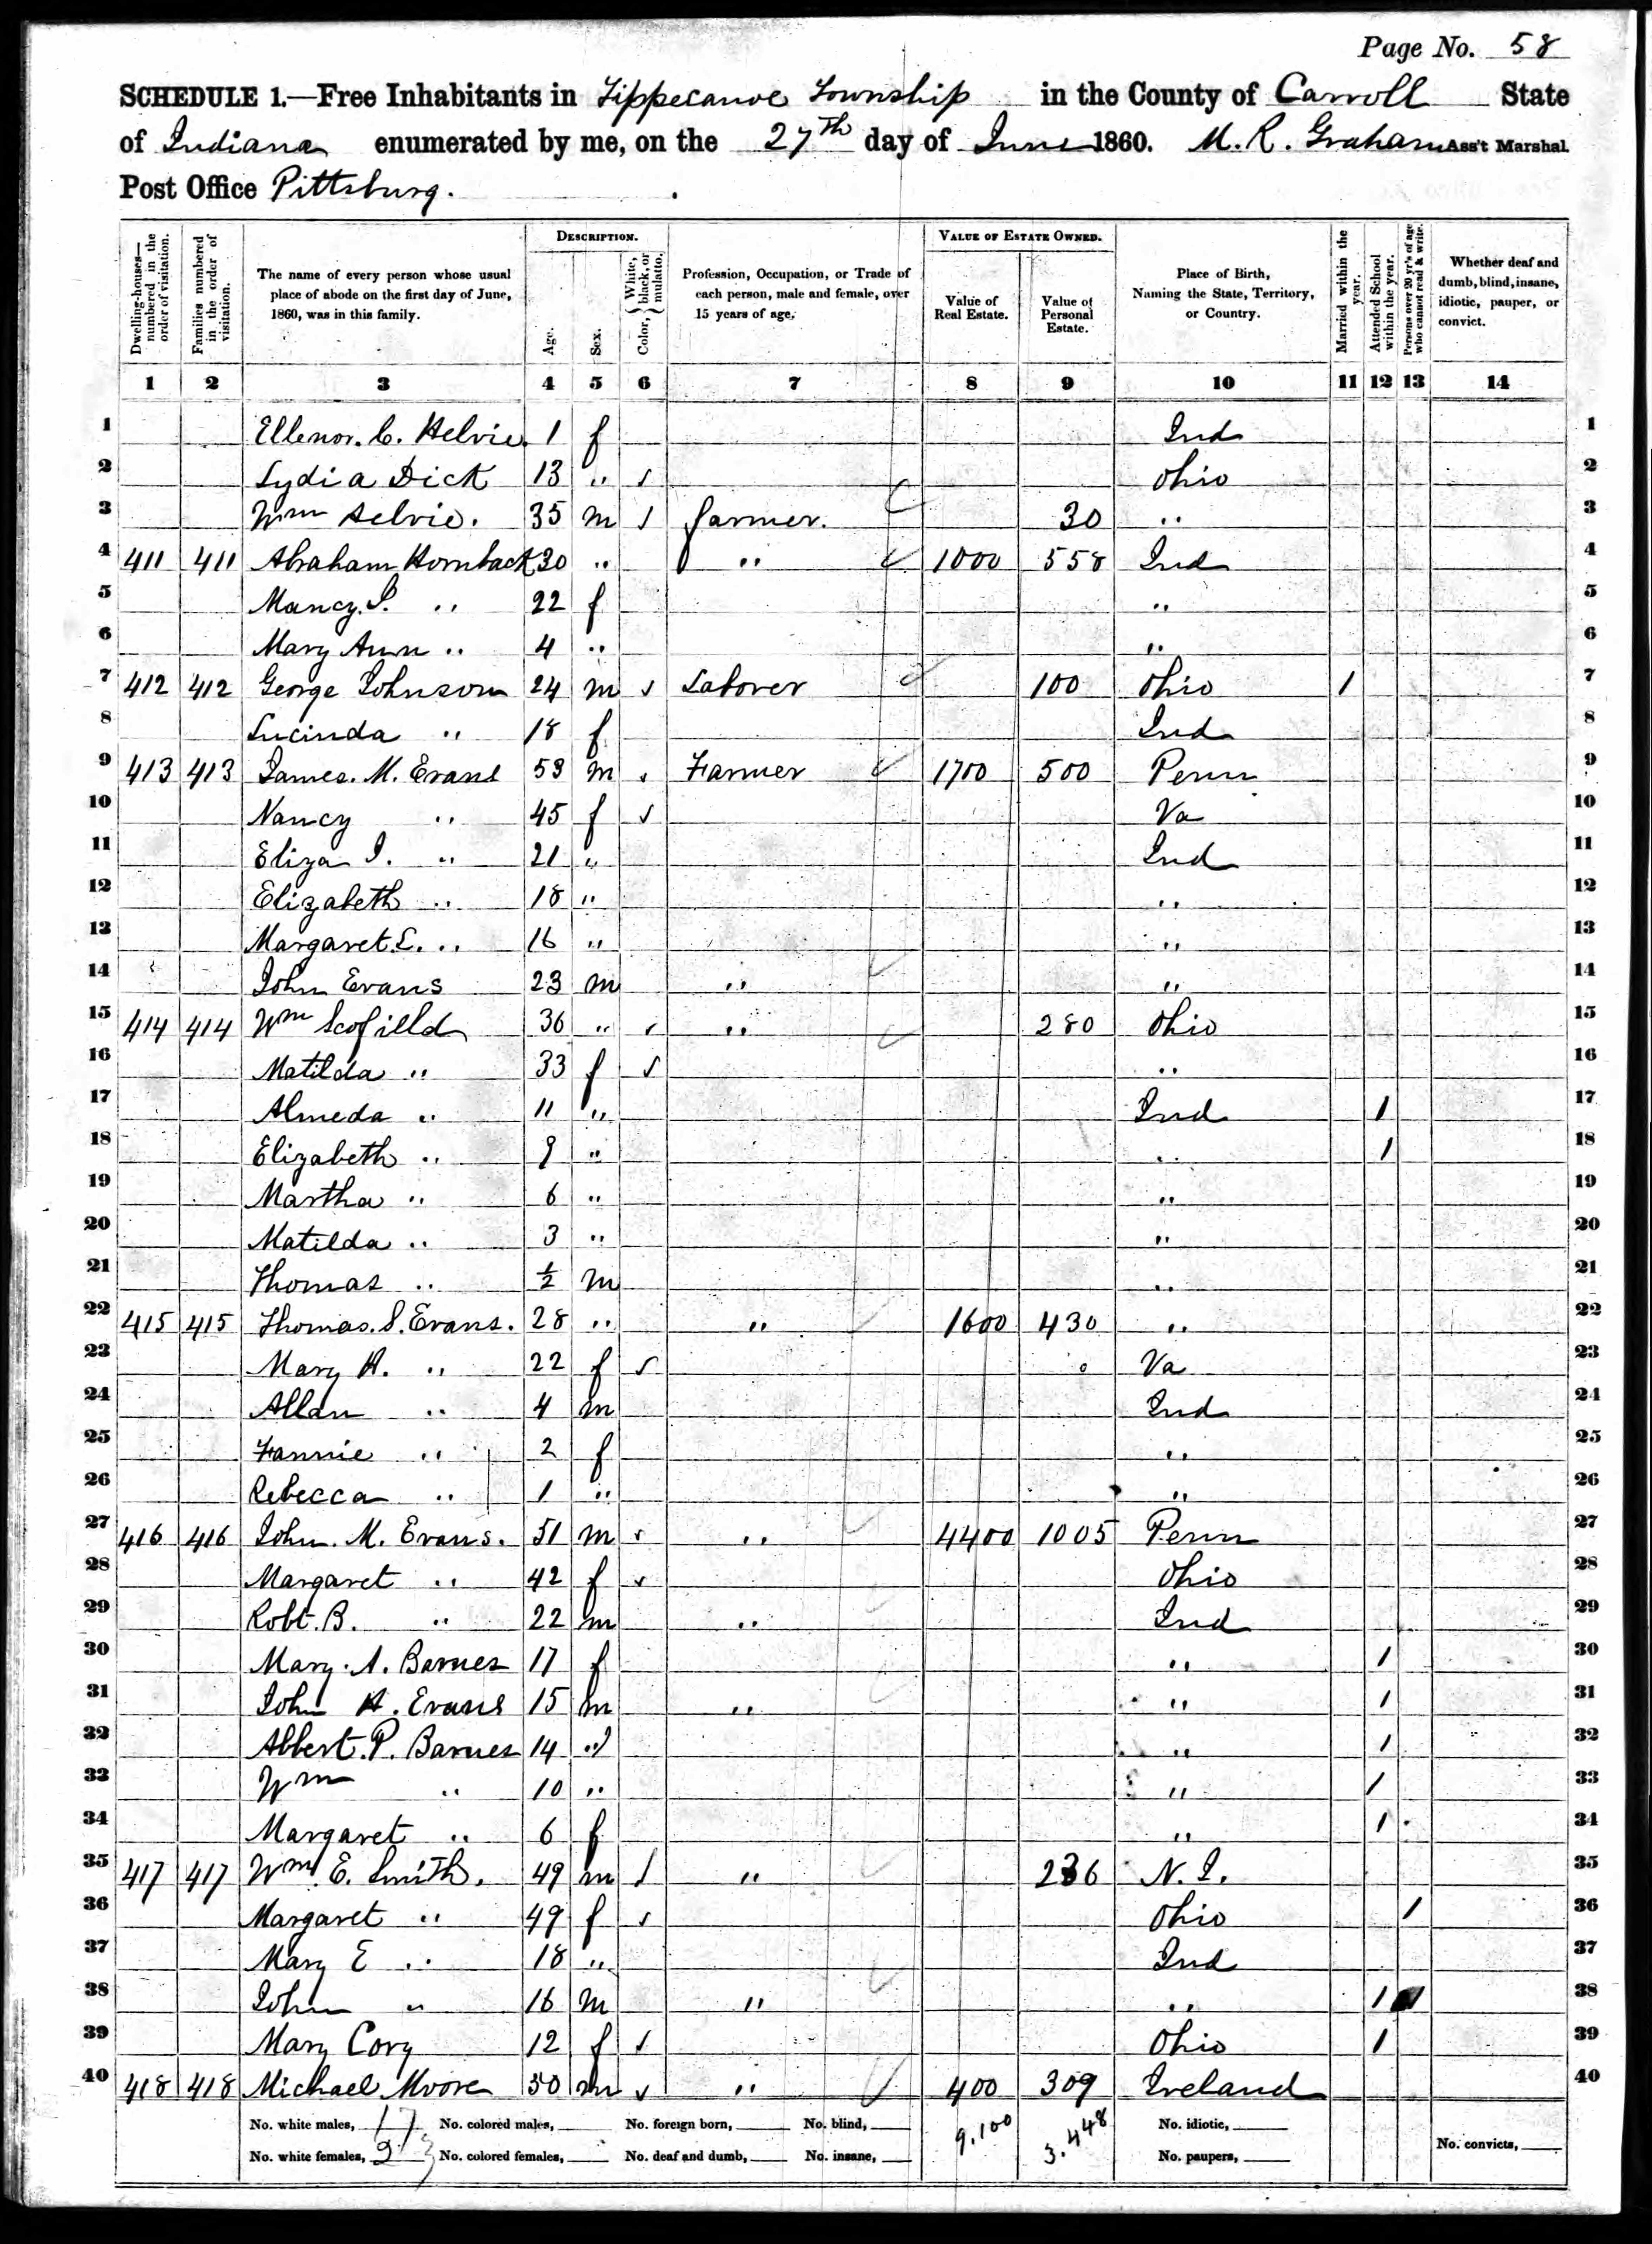 Page No. 58
SCHEDULE 1.—Free Inhabitants in Tippecanoe Township in the County of Carroll State
of Indiana enumerated by me, on the 27th day of June 1860. M. R. Graham Ass't Marshal
Post Office Pittsburg.
Dwelling-houses—numbered in the order of visitation.
Families numbered in the order of visitation.
The name of every person whose usual place of abode on the first day of June, 1860, was in this family.
DESCRIPTION.
Age.
Sex.
Color, { White, black, or mulatto.
Profession, Occupation, or Trade of each person, male and female, over 15 years of age.
VALUE OF ESTATE OWNED.
Value of Real Estate.
Value of Personal Estate.
Place of Birth, Naming the State, Territory, or Country.
Married within the year.
Attended School within the year.
Persons over 20 yr's of age who cannot read & write.
Whether deaf and dumb, blind, insane, idiotic, pauper, or convict.
1 2 3 4 5 6 7 8 9 10 11 12 13 14
1 Ellenor. C. Helvie. 1 f Ind 1
2 Lydia Dick 13 " Ohio 2
3 Wm Helvie. 35 m farmer. 30 " 3
4 411 411 Abraham Hornback 30 " " 1000 558 Ind 4
5 Nancy. J. " 22 f " 5
6 Mary Ann " 4 " " 6
7 412 412 George Johnson 24 m Laborer 100 Ohio 1 7
8 Lucinda " 18 f Ind 8
9 413 413 James. M. Evans 53 m Farmer 1700 500 Penn 9
10 Nancy " 45 f Va 10
11 Eliza J. " 21 " Ind 11
12 Elizabeth " 18 " " 12
13 Margaret. E. " 16 " " 13
14 John Evans 23 m " " 14
15 414 414 Wm Scofilld 36 " " 280 Ohio 15
16 Matilda " 33 f " 16
17 Almeda " 11 " Ind 1 17
18 Elizabeth " 9 " " 1 18
19 Martha " 6 " " 19
20 Matilda " 3 " " 20
21 Thomas " ½ m " 21
22 415 415 Thomas. S. Evans. 28 " " 1600 430 " 22
23 Mary A. " 22 f Va 23
24 Allan " 4 m Ind 24
25 Fannie " 2 f " 25
26 Rebecca " 1 " " 26
27 416 416 John. M. Evans. 51 m " 4400 1005 Penn 27
28 Margaret " 42 f Ohio 28
29 Robt. B. " 22 m " Ind 29
30 Mary. A. Barnes 17 f " 1 30
31 John A. Evans 15 m " " 1 31
32 Albert. P. Barnes 14 " " 1 32
33 Wm " 10 " " 1 33
34 Margaret " 6 f " 1 34
35 417 417 Wm. E. Smith. 49 m " 236 N. J. 35
36 Margaret " 49 f Ohio 1 36
37 Mary E " 18 " Ind 37
38 John " 16 m " " 1 38
39 Mary Cory 12 f Ohio 1 39
40 418 418 Michael Moore 50 m " 400 309 Ireland 40
No. white males, 17 No. colored males, No. foreign born, No. blind, 9.100 3.448 No. idiotic,
No. white females, 23 No. colored females, No. deaf and dumb, No. insane, No. paupers, No. convicts,